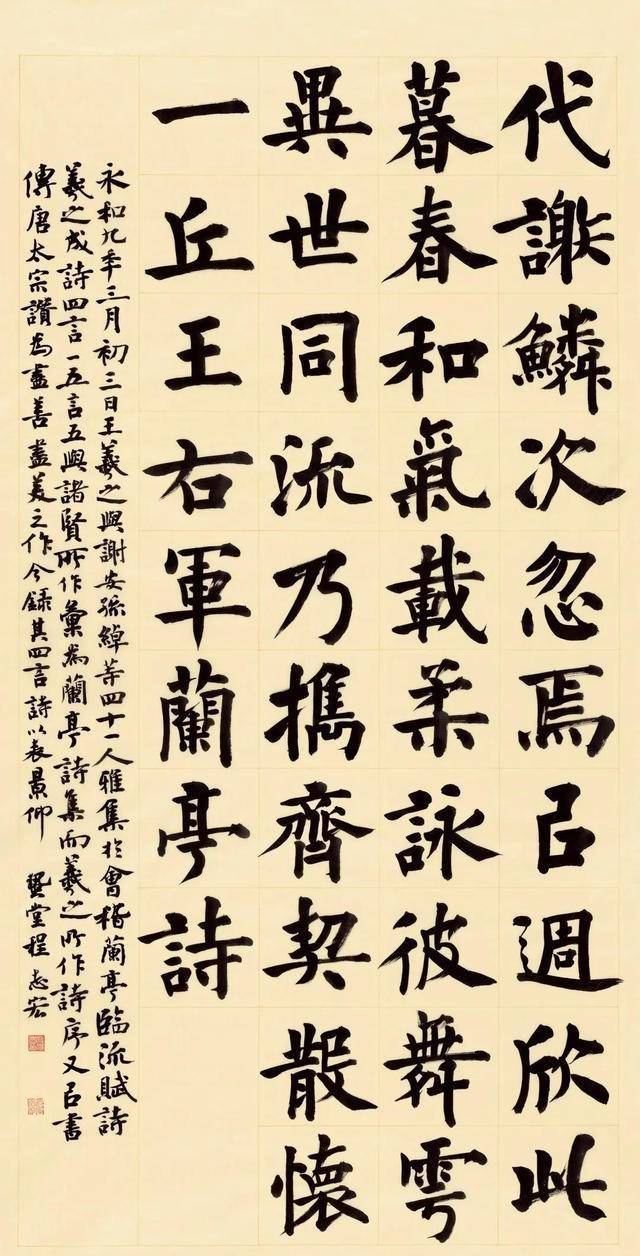 代謝鱗次忽焉㠯週欣此
暮春和氣載柔詠彼舞雩
異世同流乃擕齊契散懷
一丘王右軍蘭亭詩
永和九年三月初三日王羲之與謝安孫綽等四十一人雅集於會稽蘭亭臨流賦詩
羲之成詩四言一五言五與諸賢所作彙為蘭亭詩集而羲之所作詩序又㠯書
傳唐太宗讚為盡善盡美之作今錄其四言詩以表景仰 堂程志宏